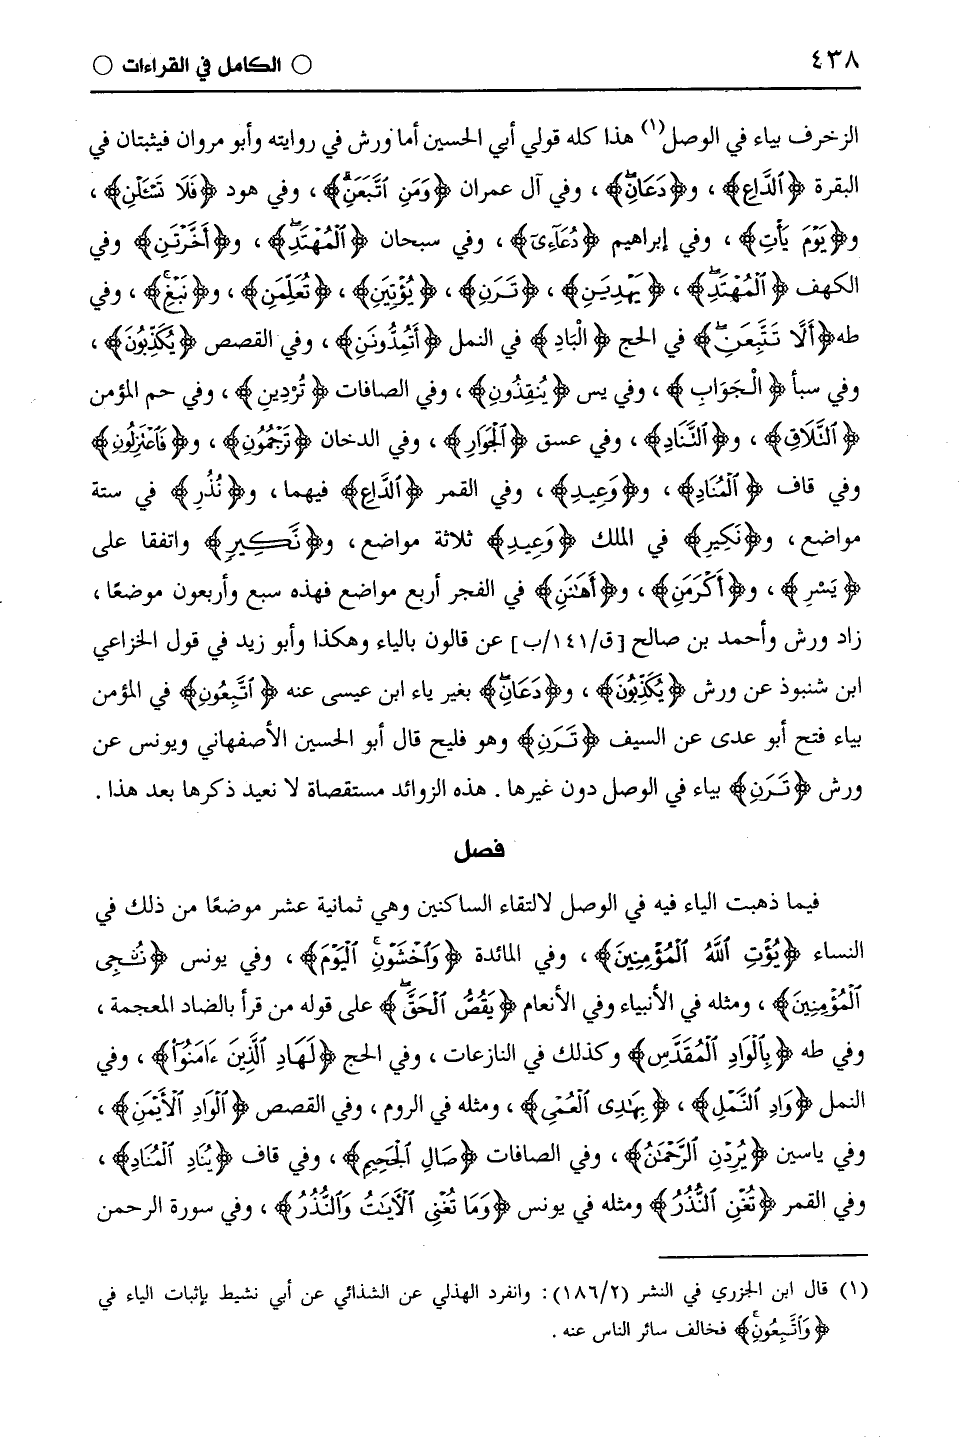 ٤٣٨
○ الكامل في القراءات ○
الزخرف بياء في الوصل(١) هذا كله قولي أبي الحسين أما ورش في روايته وأبو مروان فيثبتان في
البقرة ﴿الدَّاعِ﴾ ، و﴿دَعَانِ﴾ ، وفي آل عمران ﴿وَمَنِ اتَّبَعَنِ﴾ ، وفي هود ﴿فَلَا تَسْـَٔلْنِ﴾ ،
و﴿يَوْمَ يَأْتِ﴾ ، وفي إبراهيم ﴿دُعَآءِىَ﴾ ، وفي سبحان ﴿الْمُهْتَدِ﴾ ، و﴿أَخَّرْتَنِ﴾ وفي
الكهف ﴿الْمُهْتَدِ﴾ ، ﴿يَهْدِيَنِ﴾ ، ﴿تَرَنِ﴾ ، ﴿يُؤْتِيَنِ﴾ ، ﴿تُعَلِّمَنِ﴾ ، و﴿نَبْغِ﴾ ، وفي
طه ﴿أَلَّا تَتَّبِعَنِ﴾ في الحج ﴿الْبَادِ﴾ في النمل ﴿أَتُمِدُّونَنِ﴾ ، وفي القصص ﴿يُكَذِّبُونَ﴾ ،
وفي سبأ ﴿الْجَوَابِ﴾ ، وفي يس ﴿يُنقِذُونِ﴾ ، وفي الصافات ﴿تُرْدِينِ﴾ ، وفي حم المؤمن
﴿التَّلَاقِ﴾ ، و﴿التَّنَادِ﴾ ، وفي عسق ﴿الْجَوَارِ﴾ ، وفي الدخان ﴿تَرْجُمُونِ﴾ ، و﴿فَاعْتَزِلُونِ﴾
وفي قاف ﴿الْمُنَادِ﴾ ، و﴿وَعِيدِ﴾ ، وفي القمر ﴿الدَّاعِ﴾ فيهما ، و﴿نُذُرِ﴾ في ستة
مواضع ، و﴿نَكِيرِ﴾ في الملك ﴿وَعِيدِ﴾ ثلاثة مواضع ، و﴿نَّكِيرٍ﴾ واتفقا على
﴿يَسْرِ﴾ ، و﴿أَكْرَمَنِ﴾ ، و﴿أَهَٰنَنِ﴾ في الفجر أربع مواضع فهذه سبع وأربعون موضعًا ،
زاد ورش وأحمد بن صالح [ق/١٤١/ب] عن قالون بالياء وهكذا وأبو زيد في قول الخزاعي
ابن شنبوذ عن ورش ﴿يُكَذِّبُونَ﴾ ، و﴿دَعَانِ﴾ بغير ياء ابن عيسى عنه ﴿اتَّبِعُونِ﴾ في المؤمن
بياء فتح أبو عدى عن السيف ﴿تَرَنِ﴾ وهو فليح قال أبو الحسين الأصفهاني ويونس عن
ورش ﴿تَرَنِ﴾ بياء في الوصل دون غيرها . هذه الزوائد مستقصاة لا نعيد ذكرها بعد هذا .
فصل
فيما ذهبت الياء فيه في الوصل لالتقاء الساكنين وهي ثمانية عشر موضعًا من ذلك في
النساء ﴿يُؤْتِ اللَّهُ الْمُؤْمِنِينَ﴾ ، وفي المائدة ﴿وَاخْشَوْنِ الْيَوْمَ﴾ ، وفي يونس ﴿نُنجِى
الْمُؤْمِنِينَ﴾ ، ومثله في الأنبياء وفي الأنعام ﴿يَقُصُّ الْحَقَّ﴾ على قوله من قرأ بالضاد المعجمة ،
وفي طه ﴿بِالْوَادِ الْمُقَدَّسِ﴾ وكذلك في النازعات ، وفي الحج ﴿لَهَادِ الَّذِينَ ءَامَنُوٓاْ﴾ ، وفي
النمل ﴿وَادِ النَّمْلِ﴾ ، ﴿بِهَٰدِى الْعُمْىِ﴾ ، ومثله في الروم ، وفي القصص ﴿الْوَادِ الْأَيْمَنِ﴾ ،
وفي ياسين ﴿يُرِدْنِ الرَّحْمَٰنُ﴾ ، وفي الصافات ﴿صَالِ الْجَحِيمِ﴾ ، وفي قاف ﴿يُنَادِ الْمُنَادِ﴾ ،
وفي القمر ﴿تُغْنِ النُّذُرُ﴾ ومثله في يونس ﴿وَمَا تُغْنِى الْآيَٰتُ وَالنُّذُرُ﴾ ، وفي سورة الرحمن
(١) قال ابن الجزري في النشر (١٨٦/٢): وانفرد الهذلي عن الشذائي عن أبي نشيط بإثبات الياء في
﴿وَاتَّبِعُونِ﴾ فخالف سائر الناس عنه .